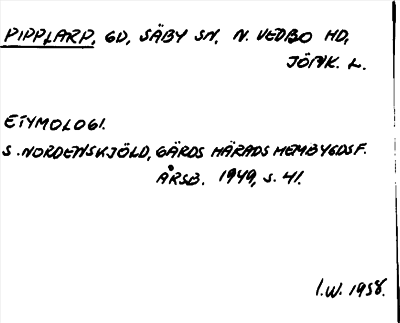 PIPPLARP, GD, SÄBY SN, N. VEDBO HD,
JÖNK. L.
ETYMOLOGI.
S. NORDENSKJÖLD, GÄRDS HÄRADS HEMBYGDSF.
ÅRSB. 1949, S. 41.
I.W. 1958.